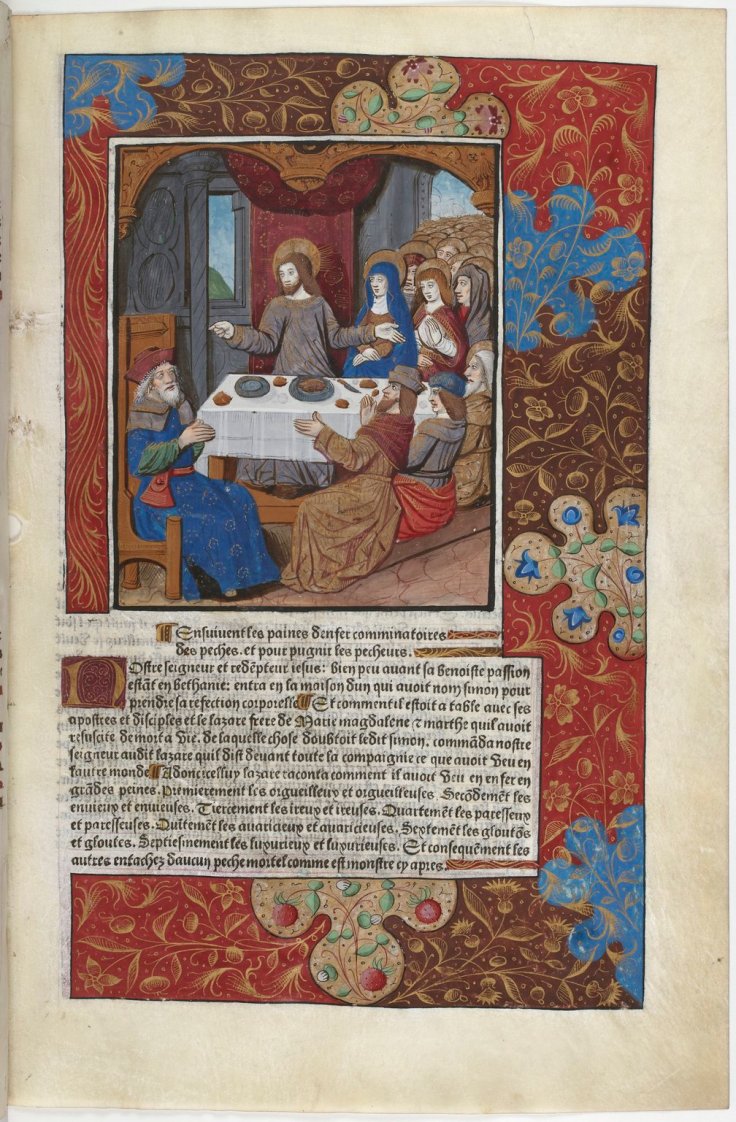 Ensuivent les paines denfer comminatoires
des peches. et pour pugnir les pecheurs.
Nostre seigneur et redẽpteur iesus: bien peu auant sa benoiste passion
estãt en bethanie: entra en la maison dun qui auoit nom simon pour
prendre sa refection corporelle Et comment il estoit a table auec ses
apostres et disciples et se lazare frere de Marie magdalene et marthe quil auoit
resuscite de mort a vie. de laquelle chose doubtoit ledit simon. commãda nostre
seigneur audit lazare quil dist deuant toute la compaignie ce que auoit veu en
lautre monde Adonc icelluy lazare raconta comment il auoit veu en enfer en
grãdes peines. Premierement les orgueilleux et orgueilleuses. Secõdemẽt les
enuieux et enuieuses. Tiercement les ireux et ireuses. Quartemẽt les paresseux
et paresseuses. Quĩtemẽt les auaricieux et auaricieuses. Septemẽt les gloutõs
et gloutes. Septiesmement les luxurieux et luxurieuses. Et consequẽment les
autres entachez daucun peche mortel comme est monstre cy apres.